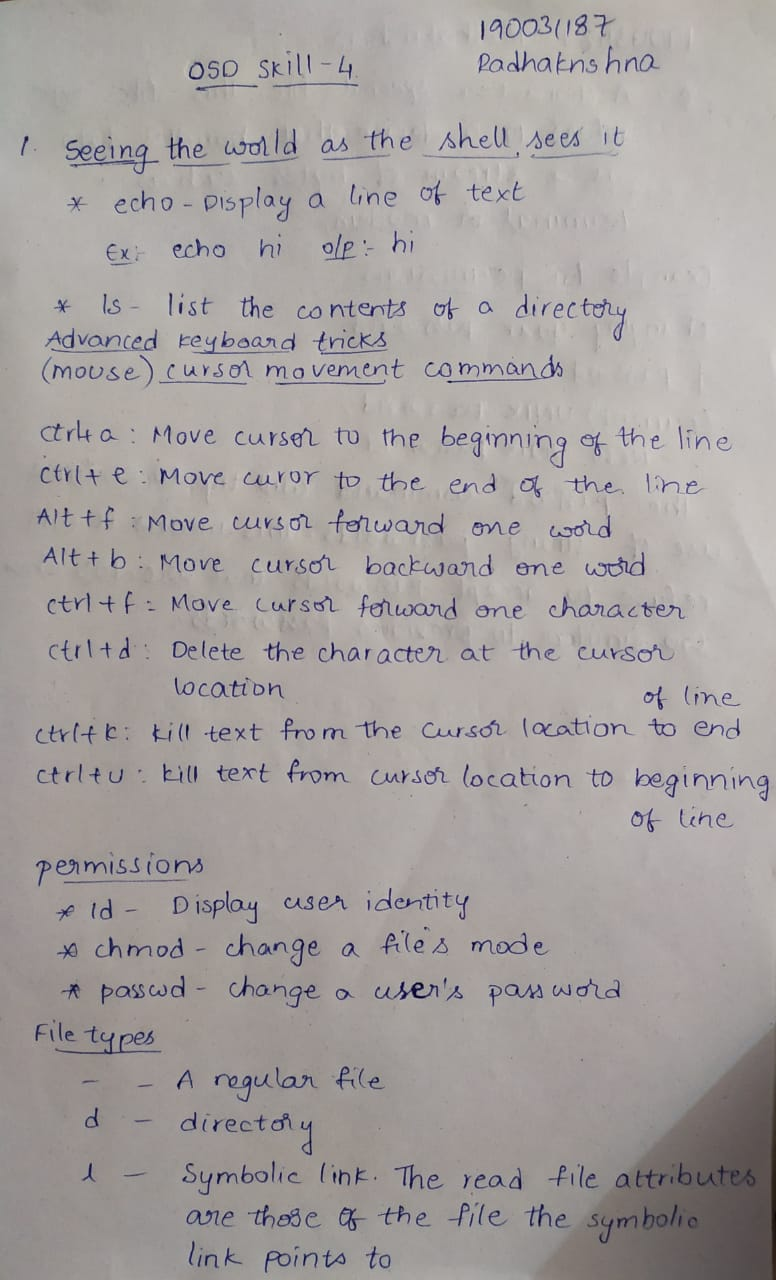 190031187
OSD Skill-4
Radhakrishna
1. Seeing the world as the shell sees it
* echo - Display a line of text
Ex:- echo hi o/p:- hi
* ls - list the contents of a directory
Advanced keyboard tricks
(mouse) cursor movement commands
ctrl+a : Move cursor to the beginning of the line
ctrl+e : Move curor to the end of the line
Alt+f : Move cursor forward one word
Alt+b : Move cursor backward one word
ctrl+f : Move cursor forward one character
ctrl+d : Delete the character at the cursor
location
of line
ctrl+k : kill text from the cursor location to end
ctrl+u : kill text from cursor location to beginning
of line
permissions
* Id - Display user identity
* chmod - change a file's mode
* passwd - change a user's password
File types
- - A regular file
d - directory
l - Symbolic link. The read file attributes
are those of the file the symbolic
link points to